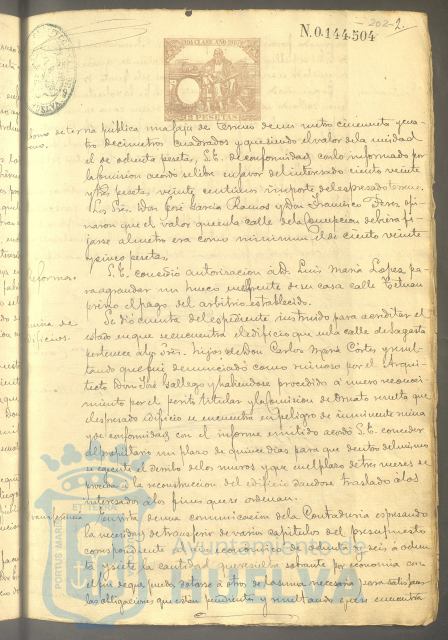 202-2.
N.0.144.504
10ª CLASE. AÑO
2 PESETAS
como de terria pública una faja de terreno de un metro cincuenta y cua-
tro decimetros cuadrados y que siendo el valor de la unidad
el de ochenta pesetas, S.E. de conformidad con lo informado por
la Comision acordó se libre en favor del interesado ciento veinte
y tres pesetas, veinte centimos importe del espresado terreno.
Los Sres. Don José García Ramos y Don Francisco opi-
naron que el valor que en la calle de la Concepcion debiera fi-
jarse al metro era como minimum el de ciento veinte
y cinco pesetas.
Reforma.
S.E. concedió autorizacion á D. Luis Maria Lopez pa-
ra agrandar un hueco en el frente de su casa calle Tetuan
previo el pago del arbitrio establecido.
ruina de
edificios.
Se dió cuenta del espediente instruido para acreditar el
estado en que se encuentra el edificio que en la calle de Sagasta
pertenece á los Sres. hijos de Don Carlos Maria Cortes y resul-
tando que fué denunciado como ruinoso por el Arqui-
tecto Don José Gallego y habiendose procedido á nuevo reconoci-
miento por el perito titular y la Comision de Ornato resulta que
el espresado edificio se encuentra en peligro de inminente ruina
y de conformidad con el informe emitido acordó S.E. conceder
al propietario un plazo de quince dias para que dentro del mismo
se ejecute el derribo de los muros y que en el plazo de tres meses se
proceda á la reconstruccion del edificio dandose traslado á los
interesados á los fines que se ordenan.
En vista de una comunicacion de la Contaduria espresando
la necesidad de transferir de varios capitulos del presupuesto
correspondiente al año economico de ochenta y seis á ochen-
ta y siete la cantidad que resulta sobrante por economia con
el fin de que pueda dotarse á otros de la suma necesaria para
las obligaciones que estan pendientes y resultando que se encuentra
PORTUS MARIAE
ET TERRAE
Ayuntamiento de